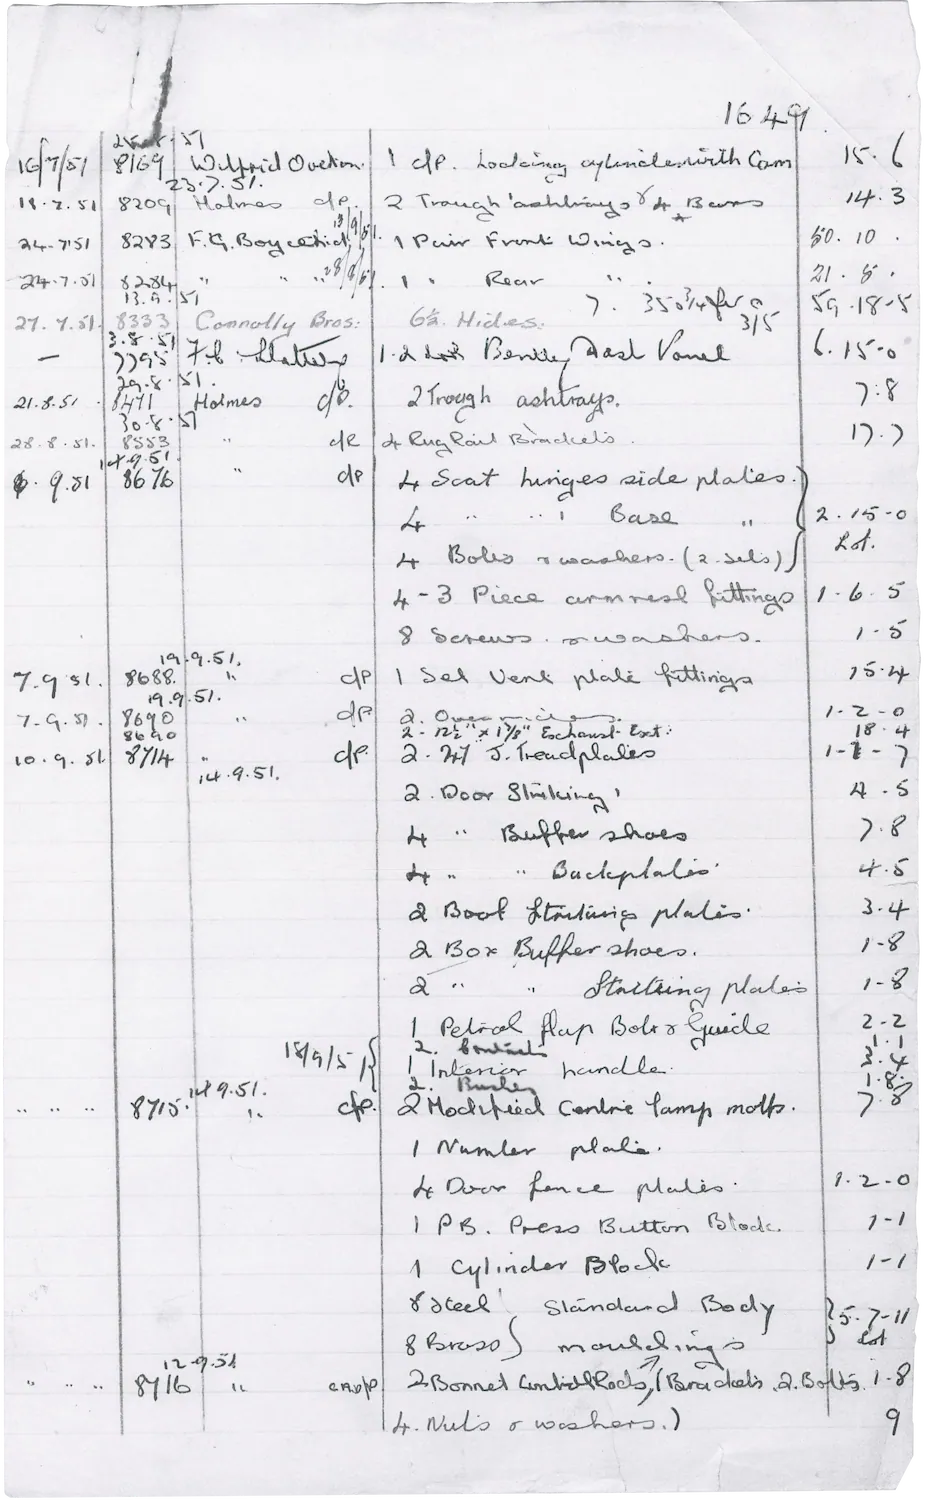 1649
25. 8. 51
16/7/51 8169 Wilfrid Overton 1 c/P. Locking cylinder with Cam 15. 6
23.7.51.
18.7.51 8209 Holmes c/P. 2 Trough ashtrays & 4 Bars 14.3
13/9/51.
24.7.51 8283 F.G. Boycethid 1 Pair Front Wings. 50. 10 .
28/8/51
24.7.51 8284 " " " . 1 " Rear " . 21. 5.
13.9.51 7. 350 3/4 ft @ 3/5 59-18-5
27. 7. 51. 8333 Connolly Bros: 6½ Hides.
3.8.51
— 7795 F.C. 1. Bentley Dash Panel 6. 15-0
29.8.51.
21.8.51 . 8471 Holmes c/P. 2 Trough ashtrays. 7:8
30.8.51
28.8.51. 8553 " c/P 4 Rug Rail Brackets. 17.7
14.9.51.
6. 9.51 8676 " c/P 4 Seat hinges side plates.
4 " " Base " 2. 15-0
4 Bolts & washers. (2 sets) Lot.
4 - 3 Piece armrest fittings 1-6.5
8 Screws & washers. 1-5
19.9.51.
7.9.51. 8688. " c/P 1 Set Vent plate fittings 15.4
19.9.51.
7.9.51. 8690 " c/P 2. Overriders. 1-2-0
8690 2 - 12½" x 1⅛" Exhaust Ext: 18.4
10.9.51 8714 " c/P. 2. 27 J. Treadplates 1-1-7
14.9.51.
2. Door Striking 4.5
4 " Buffer shoes 7.8
4 " " Backplates 4.5
2 Boot Striking plates. 3.4
2 Box Buffer shoes. 1-8
2 " " Striking plates 1-8
1 Petrol flap Bolt & Guide 2-2
18/9/51 2. 1.1
1 Interior handle. 3.4
14.9.51. 2. Bushes 1.8.
" " " 8715. " c/P. 2 Modified Centre lamp motts. 7.8
1 Number plate.
4 Door fence plates. 1-2-0
1 PB. Press Button Block. 1-1
1 Cylinder Block 1-1
8 Steel Standard Body 5-7-11
8 Brass mouldings Lot
12.9.51
" " " 8716 " 2 Bonnet Control Rods, (Brackets. 2. Bolts 1-8
4. Nuts & washers.) 9